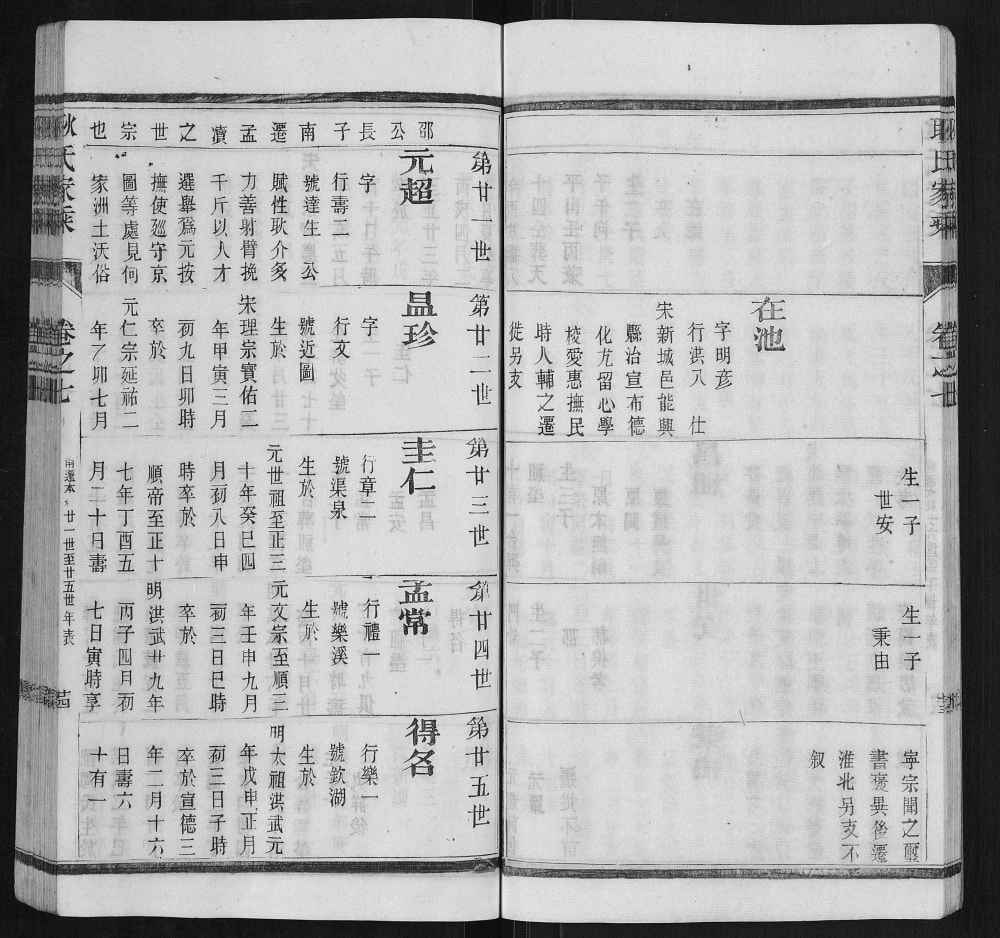 耿氏家乘
卷之七
在池
字明彥
行洪八　仕
宋新城邑能興
縣治宣布德
化尤留心學
校愛惠撫民
時人輔之遷
徙另支
生一子
世安
生一子
秉由
寧宗聞之璽
書褒異後遷
淮北另支不
敘
邵公長子南遷孟瀆之世宗也
第廿一世
元超
字
行壽三
號達生公
賦性耿介矣
力善射臂挽
千斤以人才
選舉爲元按
撫使廵守京
圖等處見何
家洲土沃俗
第廿二世
昷珍
字
行文一
號近圖
生於
宋理宗寶佑二
年甲寅三月
初九日卯時
卒於
元仁宗延祐二
年乙卯七月
第廿三世
圭仁
行章二
號渠泉
生於
元世祖至正三
十年癸巳四
月初八日申
時卒於
順帝至正十
七年丁酉五
月二十日壽
第廿四世
孟常
行禮一
號樂溪
生於
元文宗至順三
年壬申九月
初三日巳時
卒於
明洪武廿九年
丙子四月初
七日寅時享
第廿五世
得名
行樂一
號欽湖
生於
明太祖洪武元
年戊申正月
初三日子時
卒於宣德三
年二月十六
日壽六
十有一
耿氏家乘
卷之七
南遷本支廿一世至廿五世年表